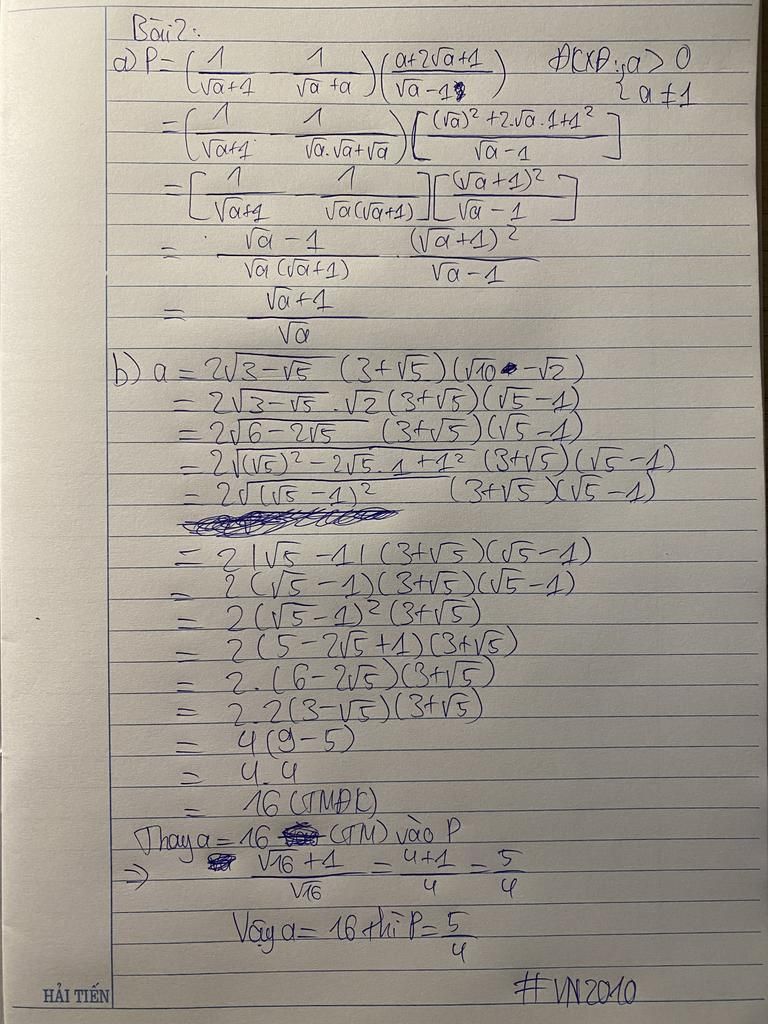 Bài 2:
a) P = (1/(√a+1) - 1/(√a+a))((a+2√a+1)/(√a-1)) ĐKXĐ: {a > 0
{a ≠ 1
= (1/(√a+1) - 1/(√a.√a+√a))[((√a)²+2.√a.1+1²)/(√a-1)]
= [1/(√a+1) - 1/(√a(√a+1))][(√a+1)²/(√a-1)]
= (√a-1)/(√a(√a+1)) . (√a+1)²/(√a-1)
= (√a+1)/√a
b) a = 2√(3-√5) (3+√5)(√10 - √2)
= 2√(3-√5) . √2(3+√5)(√5-1)
= 2√(6-2√5) (3+√5)(√5-1)
= 2√((√5)²-2√5.1+1²) (3+√5)(√5-1)
= 2√((√5-1)²) (3+√5)(√5-1)
= 2|√5-1|(3+√5)(√5-1)
= 2(√5-1)(3+√5)(√5-1)
= 2(√5-1)²(3+√5)
= 2(5-2√5+1)(3+√5)
= 2.(6-2√5)(3+√5)
= 2.2(3-√5)(3+√5)
= 4(9-5)
= 4.4
= 16 (TMĐK)
Thay a = 16 (TM) vào P
=> (√16+1)/√16 = (4+1)/4 = 5/4
Vậy a = 16 thì P = 5/4
#VN2010
HẢI TIẾN